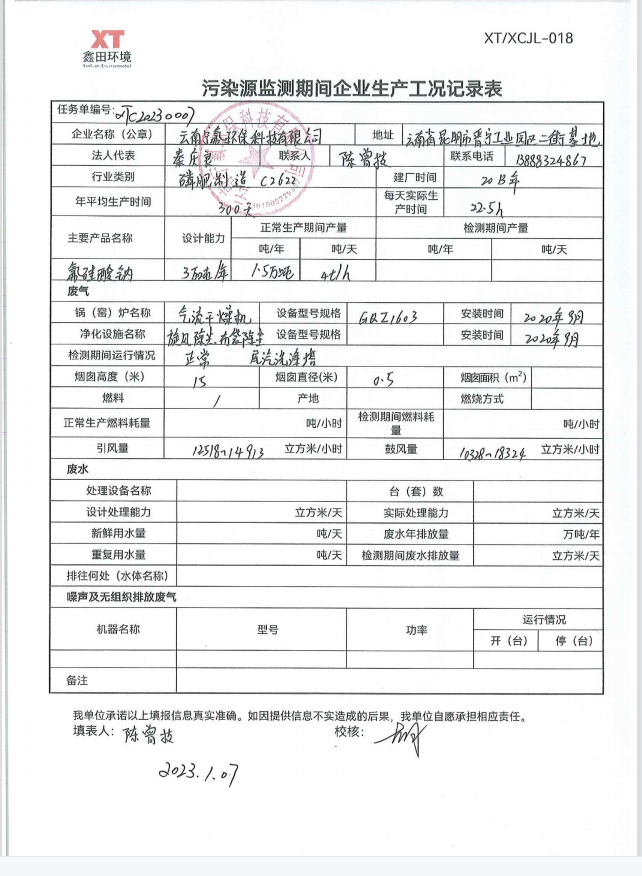 XT
鑫田环境
XT/XCJL-018
污染源监测期间企业生产工况记录表
任务单编号:
企业名称（公章） 环保科技有限公司 地址 云南省昆明市晋宁工业园区二街基地
法人代表 秦庆 联系人 陈曾技 联系电话 13888324867
行业类别 磷肥制造 C2622 建厂时间 2013年
年平均生产时间 300天 每天实际生产时间 22.5h
主要产品名称 设计能力 正常生产期间产量 检测期间产量
吨/年 吨/天 吨/年 吨/天
氟硅酸钠 3万吨/年 1.5万吨 4t/h
废气
锅（窑）炉名称 气流干燥机 设备型号规格 GQZ1603 安装时间 2020年9月
净化设施名称 旋风除尘、布袋除尘 设备型号规格 安装时间 2020年9月
检测期间运行情况 正常 尾气洗涤塔
烟囱高度（米） 15 烟囱直径(米) 0.5 烟囱面积（m²）
燃料 / 产地 燃烧方式
正常生产燃料耗量 吨/小时 检测期间燃料耗量 吨/小时
引风量 12518~14913 立方米/小时 鼓风量 10328~18324 立方米/小时
废水
处理设备名称 台（套）数
设计处理能力 立方米/天 实际处理能力 立方米/天
新鲜用水量 吨/天 废水年排放量 万吨/年
重复用水量 吨/天 检测期间废水排放量 立方米/天
排往何处（水体名称）
噪声及无组织排放废气
机器名称 型号 功率 运行情况
开（台） 停（台）
备注
我单位承诺以上填报信息真实准确。如因提供信息不实造成的后果，我单位自愿承担相应责任。
填表人: 陈曾技 校核:
2023.1.07